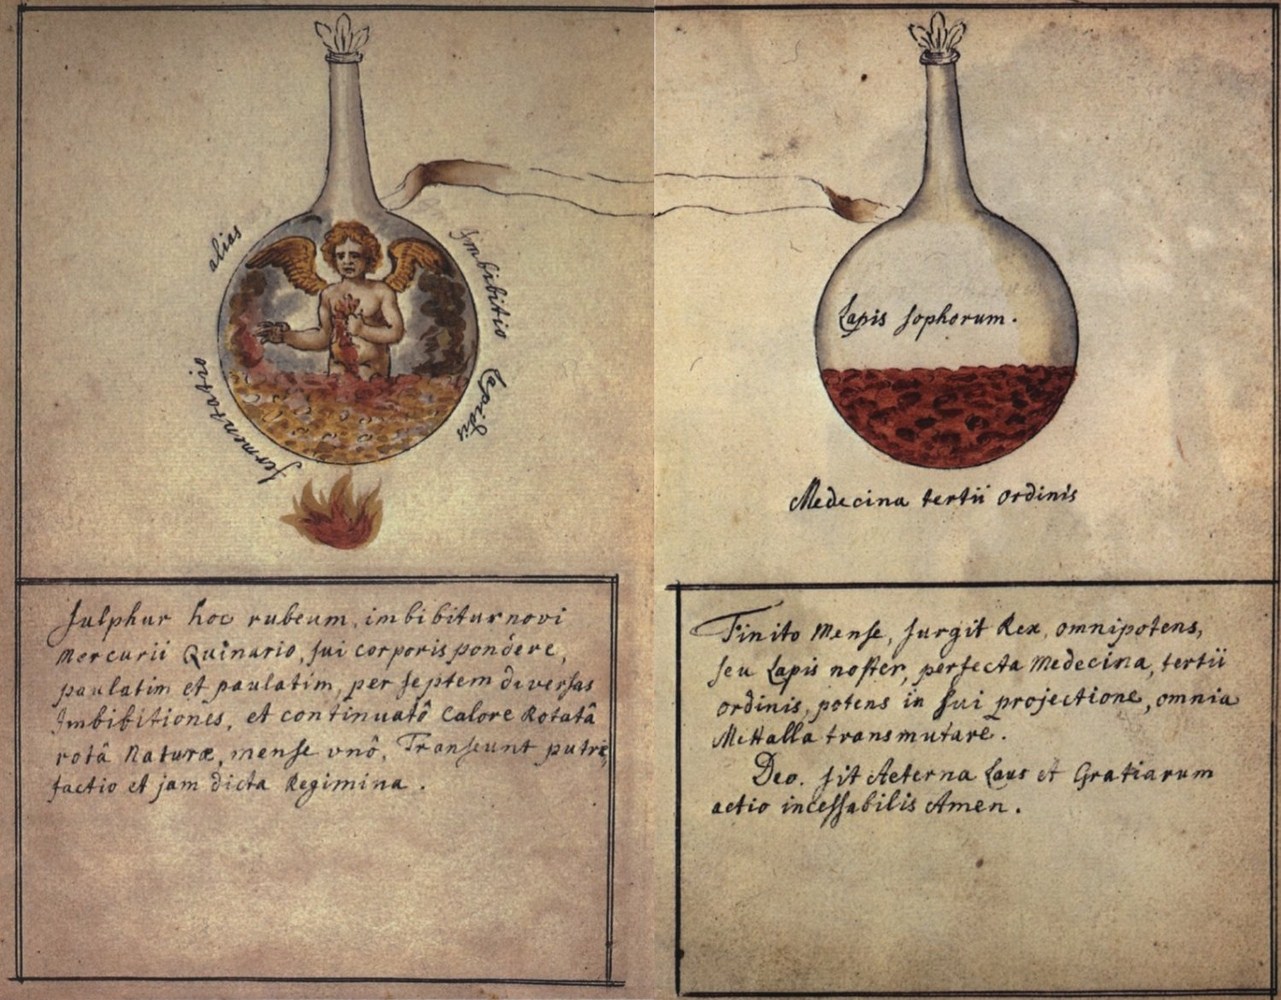 alias
Imbibitio
Lapidis
fermentatio
Sulphur hoc rubeum, imbibitur novi
Mercurii Quinario, sui corporis pondere,
paulatim et paulatim, per septem diversas
Imbibitiones, et continuatô Calore Rotatâ
rotâ Naturæ, mense vnô, Transeunt putre,
factio et jam dicta Regimina.
Lapis sophorum.
Medecina tertii ordinis
Finito Mense, surgit Rex, omnipotens,
seu Lapis noster, perfecta Medecina, tertii
ordinis, potens in sui projectione, omnia
Mettalla transmutare.
Deo. sit Aeterna Laus et Gratiarum
actio incessabilis Amen.